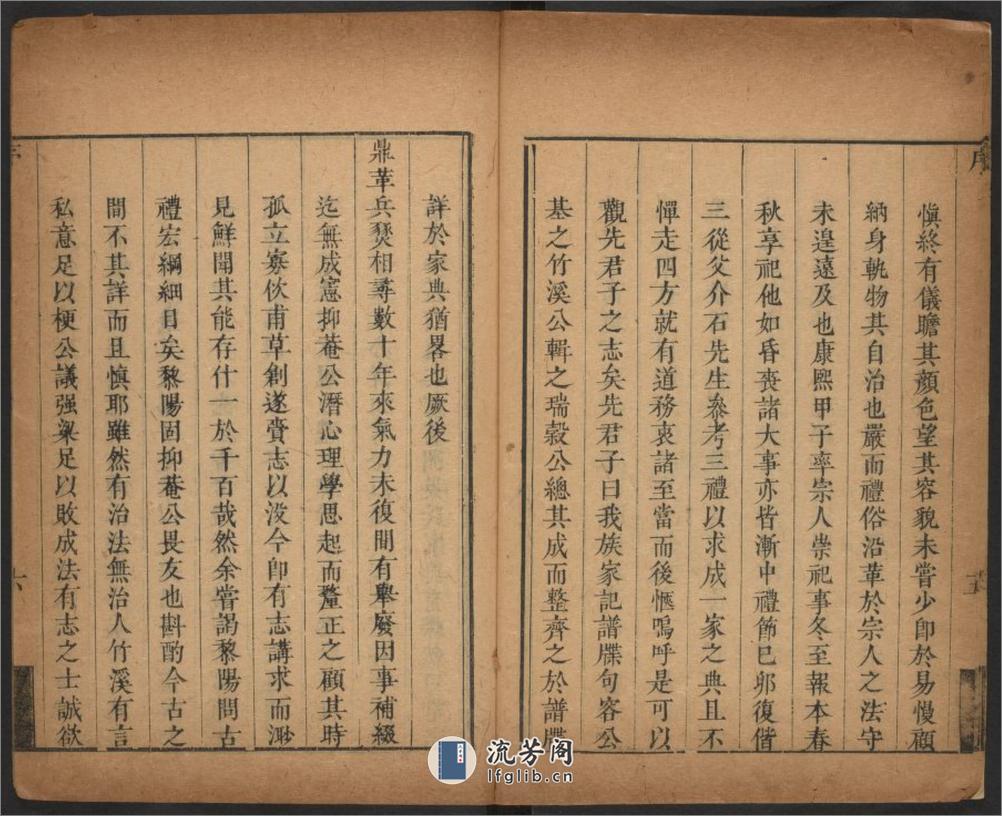 序
慎終有儀瞻其顏色望其容貌未嘗少卽於易慢顧
納身軌物其自治也嚴而禮俗沿革於宗人之法守
未遑遠及也康熙甲子率宗人崇祀事冬至報本春
秋享祀他如昏喪諸大事亦皆漸中禮節巳卯復偕
三從父介石先生叅考三禮以求成一家之典且不
憚走四方就有道務衷諸至當而後愜嗚呼是可以
觀先君子之志矣先君子曰我族家記譜牒句容公
基之竹溪公輯之瑞穀公總其成而整齊之於譜牒
五
詳於家典猶畧也厥後
鼎革兵燹相尋數十年來氣力未復間有舉廢因事補綴
迄無成憲抑菴公潛心理學思起而釐正之顧其時
孤立寡伙甫草創遂賫志以没今卽有志講求而渺
見鮮聞其能存什一於千百哉然余嘗謁黎陽問古
禮宏綱細目矣黎陽固抑菴公畏友也斟酌今古之
間不其詳而且慎耶雖然有治法無治人竹溪有言
私意足以梗公議强梁足以敗成法有志之士誠欲
六
流芳阁
lfglib.cn